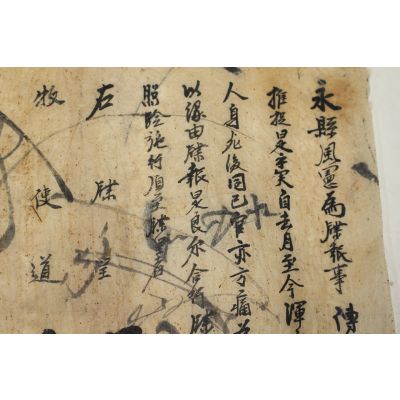 永縣風憲爲牒報事 傳
推捉是乎矣自去月至今渾
人身死後同已官亦方痛
以緣由牒報是良尔合行牒
照驗施行須至牒呈者
右牒呈
牧使道